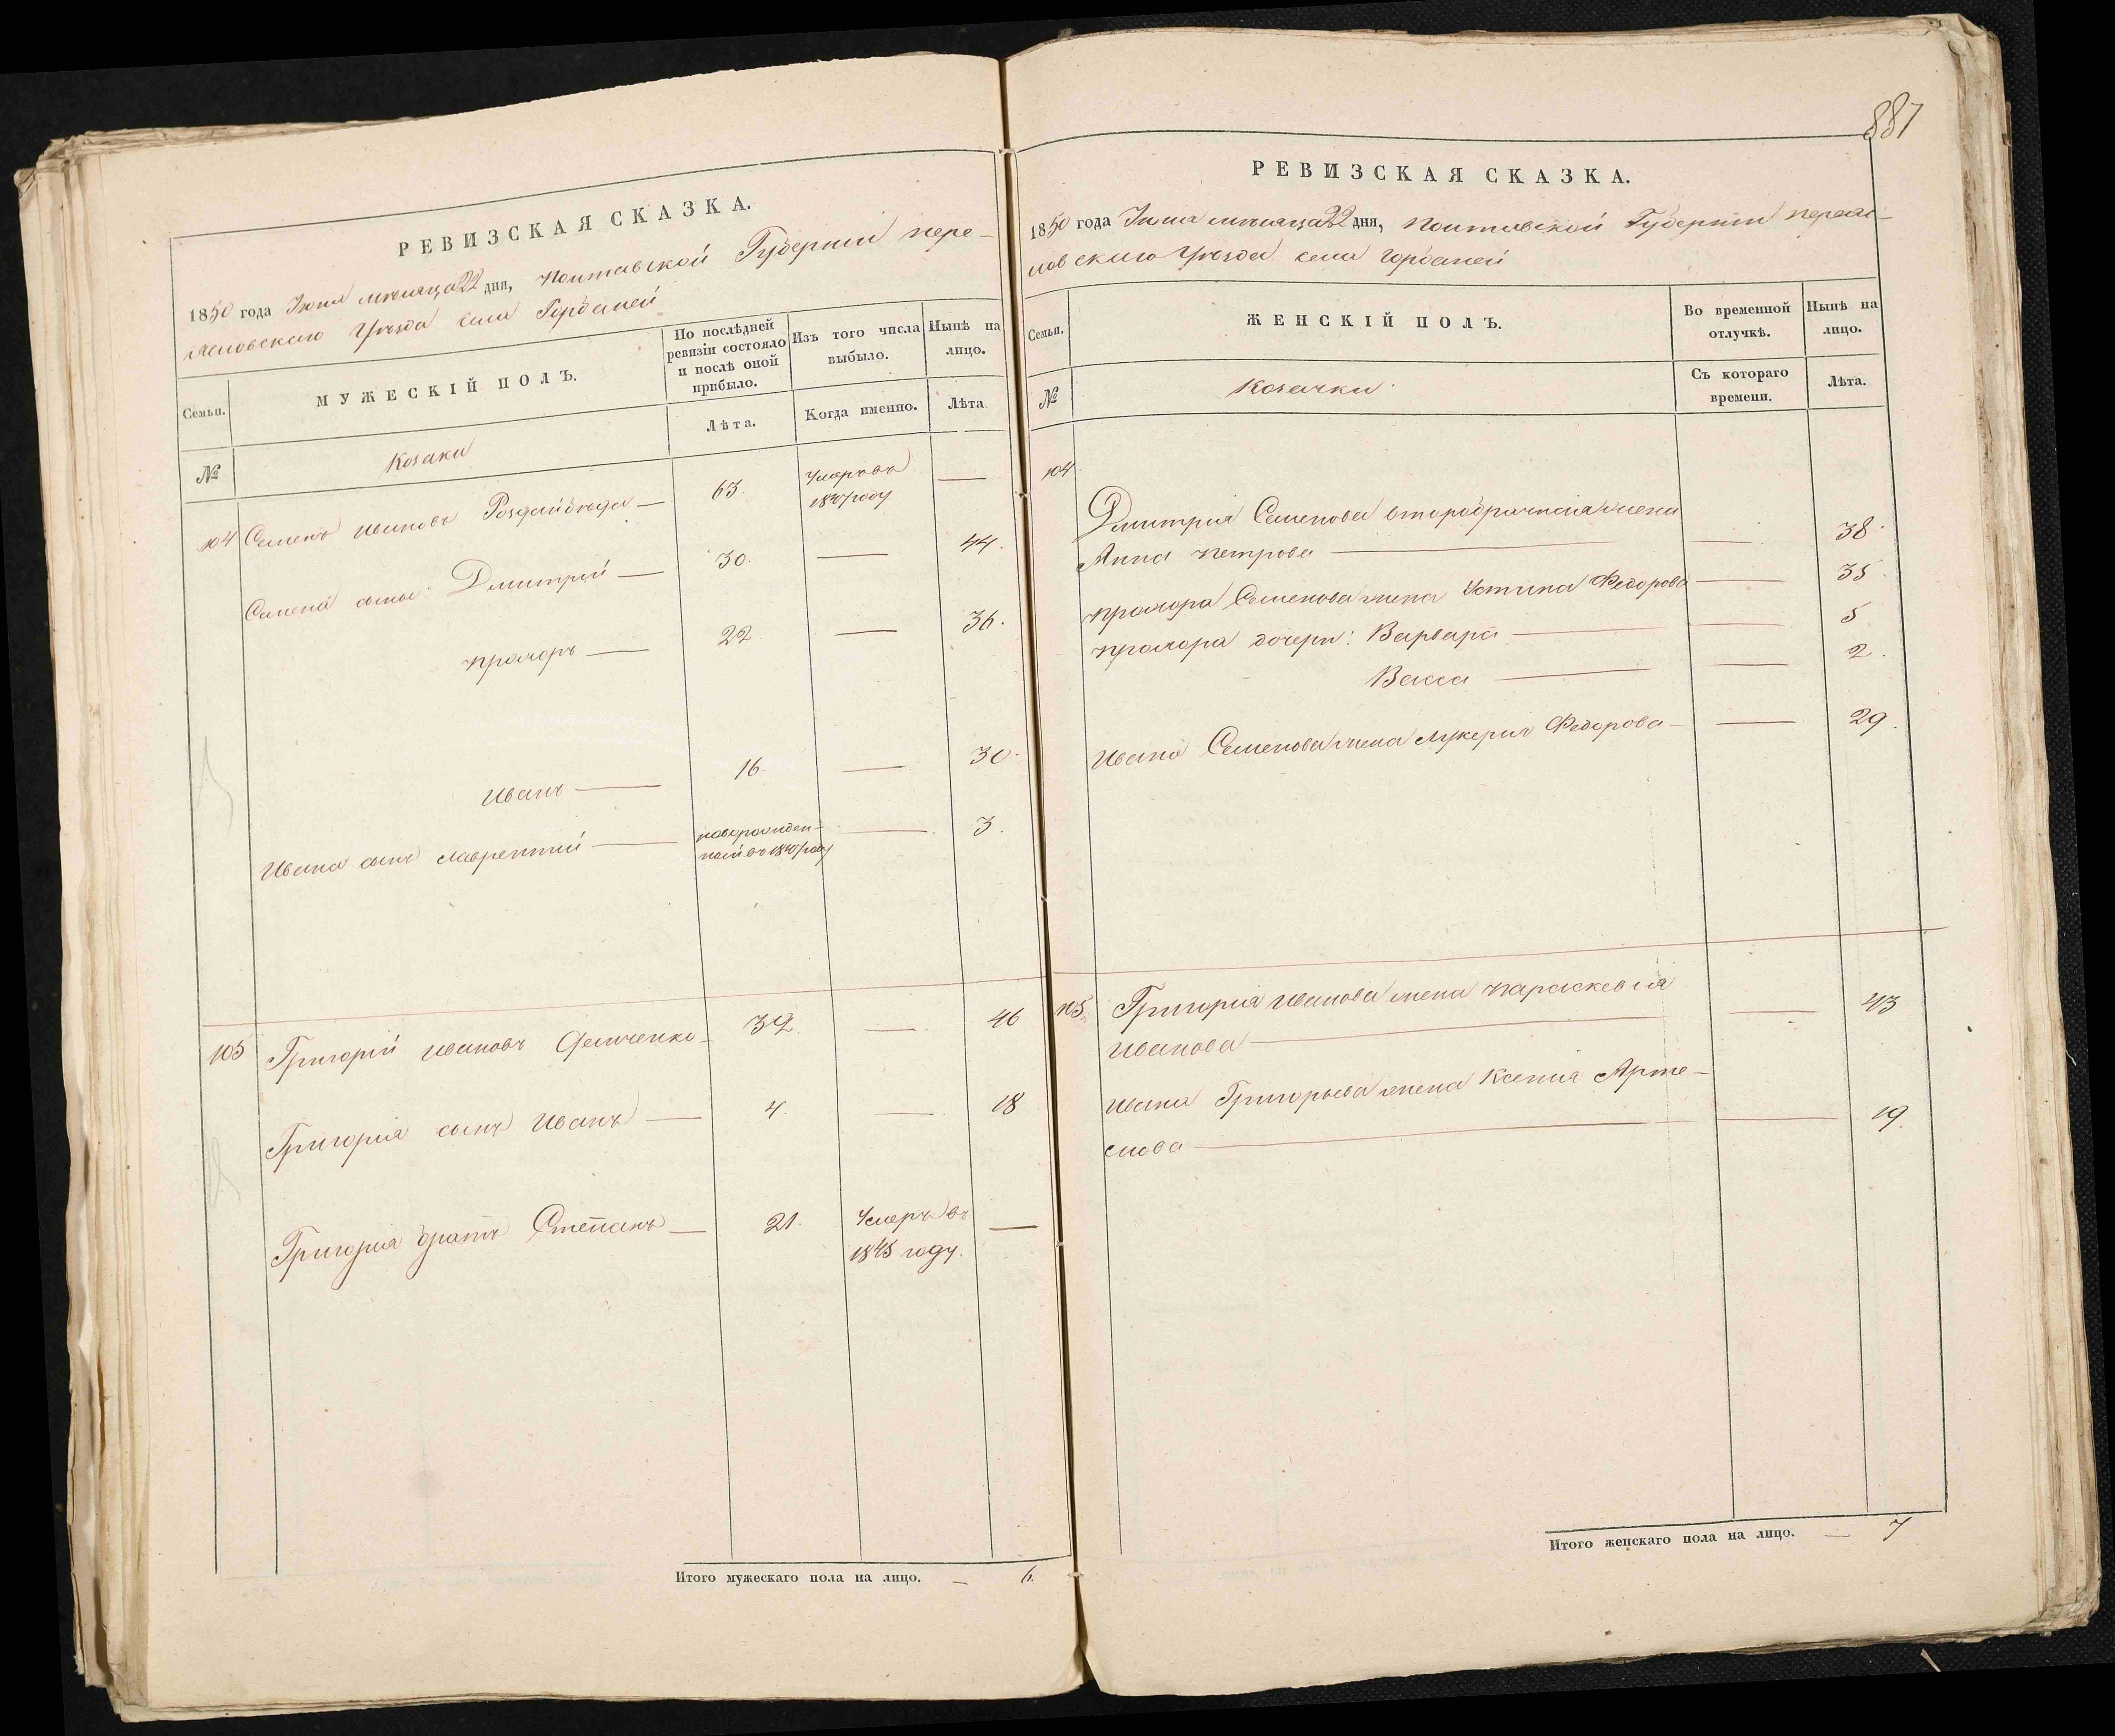 887
РЕВИЗСКАЯ СКАЗКА.
1850 года Іюня мѣсяца 22 дня, Полтавской Губерніи Пере-
яславскаго Уѣзда села Горбаней
Семьи.
МУЖЕСКІЙ ПОЛЪ.
По послѣдней ревизіи состояло и послѣ оной прибыло.
Изъ того числа выбыло.
Нынѣ на лицо.
Лѣта.
Когда именно.
Лѣта
№
Козаки
104 Семенъ Ивановъ — 63. Умеръ въ 1847 году —
Семена сыны: Дмитрій — 30. — 44.
Прохоръ — 22 — 36.
Иванъ — 16. — 30.
Ивана сынъ Лаврентій — новорожден-
ный въ 1847 году — 3.
105 Григорій Ивановъ — 32. — 46
Григорія сынъ Иванъ — 4. — 18
Григорія братъ Степанъ — 21. Умеръ въ —
1845 году.
Итого мужескаго пола на лицо. — 6.
РЕВИЗСКАЯ СКАЗКА.
1850 года Іюня мѣсяца 22 дня, Полтавской Губерніи Переяс-
лавскаго Уѣзда села Горбаней
Семьи.
ЖЕНСКІЙ ПОЛЪ.
Во временной отлучкѣ.
Нынѣ на лицо.
№
Козачки
Съ котораго времени.
Лѣта.
104
Дмитрія Семенова второбрачная жена
Анна Петрова — — 38.
Прохора Семенова жена Устина Федорова — 35.
Прохора дочери: Варвара — — 5
Васса — — 2.
Ивана Семенова жена Лукерія Федорова — — 29.
105. Григорія Иванова жена Параскевія
Иванова — — 43
Ивана Григорьева жена Ксенія Арте-
мова — — 19.
Итого женскаго пола на лицо. — 7